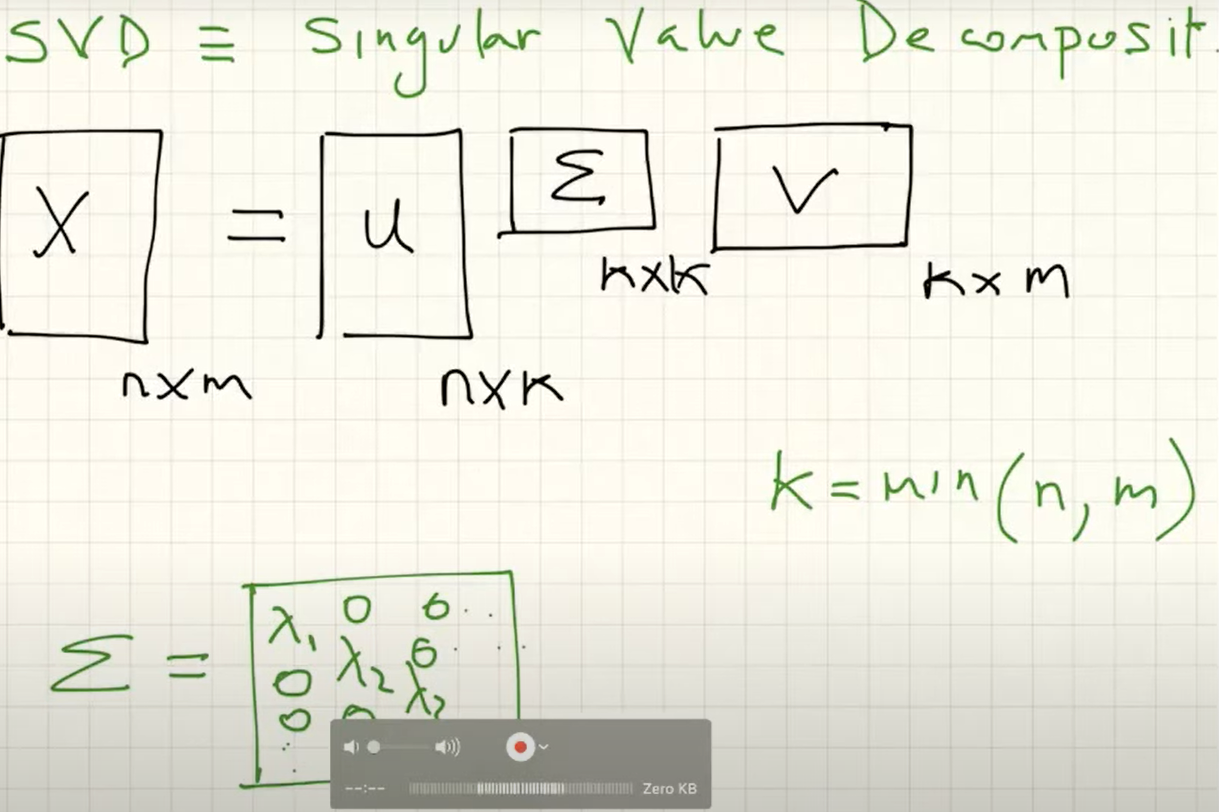 SVD ≡ Singular Value Decomposit
X = U Σ V
k×k k×m
n×m n×k
k = min(n, m)
λ₁ 0 0 . .
Σ = 0 λ₂ 0 . . .
0 0 λ₃
--:-- Zero KB